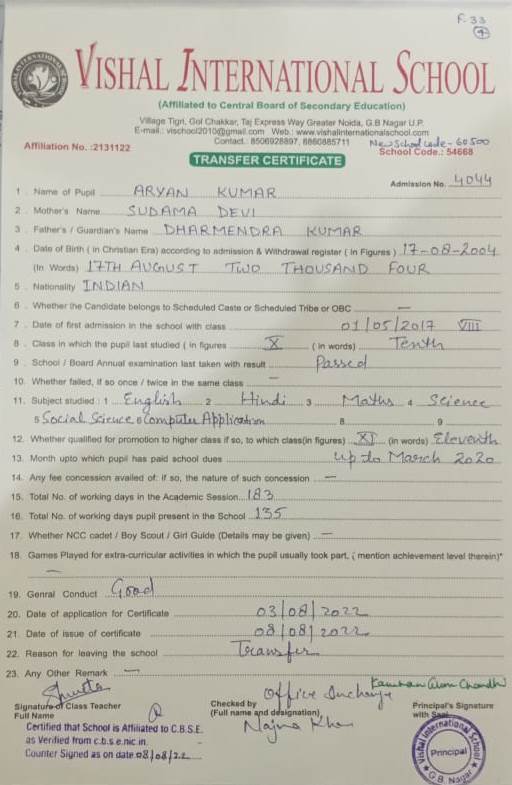 F. 33
4
VISHAL INTERNATIONAL SCHOOL
(Affiliated to Central Board of Secondary Education)
Village Tigri, Gol Chakkar, Taj Express Way Greater Noida, G.B Nagar U.P.
E-mail.: vischool2010@gmail.com Web.: www.vishalinternationalschool.com
Contact.: 8506928897, 8860885711 New School code - 60500
Affiliation No. :2131122 School Code.: 54668
TRANSFER CERTIFICATE
Admission No. 4044
1. Name of Pupil ARYAN KUMAR
2. Mother's Name SUDAMA DEVI
3. Father's / Guardian's Name DHARMENDRA KUMAR
4. Date of Birth ( in Christian Era) according to admission & Withdrawal register ( In Figures ) 17-08-2004
(In Words) 17TH AUGUST TWO THOUSAND FOUR
5. Nationality INDIAN
6. Whether the Candidate belongs to Scheduled Caste or Scheduled Tribe or OBC —
7. Date of first admission in the school with class 01/05/2017 VIII
8. Class in which the pupil last studied ( in figures X ( in words) Tenth
9. School / Board Annual examination last taken with result Passed
10. Whether failed, if so once / twice in the same class —
11. Subject studied : 1 English 2 Hindi 3 Maths 4 Science
5 Social Science 6 Computer Application 8 9
12. Whether qualified for promotion to higher class if so, to which class(in figures) XI (in words) Eleventh
13. Month upto which pupil has paid school dues up to March 2020
14. Any fee concession availed of: if so, the nature of such concession —
15. Total No. of working days in the Academic Session 183
16. Total No. of working days pupil present in the School 135
17. Whether NCC cadet / Boy Scout / Girl Guide (Details may be given) —
18. Games Played for extra-curricular activities in which the pupil usually took part, ( mention achievement level therein)*
—
19. Genral Conduct Good
20. Date of application for Certificate 03/08/2022
21. Date of issue of certificate 08/08/2022
22. Reason for leaving the school Transfer
23. Any Other Remark —
Office Incharge
Signature of Class Teacher Checked by Principal's Signature
Full Name (Full name and designation) with Seal
Najma Khan
Certified that School is Affiliated to C.B.S.E.
as Verified from c.b.s.e.nic.in.
Counter Signed as on date 08/08/22
Vishal International School
Principal
G.B. Nagar